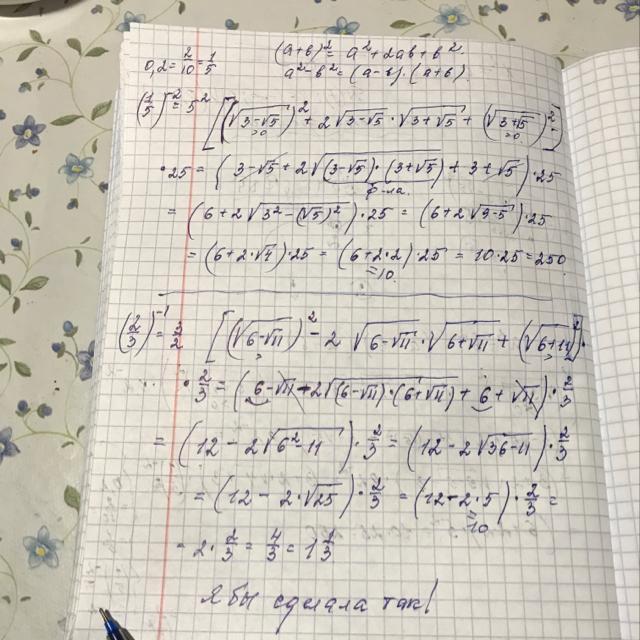 0,2 = 2/10 = 1/5
(a+b)² = a² + 2ab + b²
a² - b² = (a - b)·(a + b)
(1/5)⁻² = 5² [(√(3-√5))² + 2√(3-√5) · √(3+√5) + (√(3+√5))²] ·
≥0 ≥0
·25 = (3-√5 + 2√((3-√5)·(3+√5)) + 3+√5)·25
ф-ла
= (6 + 2√(3² - (√5)²))·25 = (6 + 2√(9-5))·25
= (6 + 2·√4)·25 = (6 + 2·2)·25 = 10·25 = 250
=10
(2/3)⁻¹ = 3/2 [(√(6-√11))² - 2 √(6-√11) · √(6+√11) + (√(6+11))²] ·
· 2/3 = (6 - √11 - 2√((6-√11)·(6+√11)) + 6 + √11)· 2/3
= (12 - 2√(6² - 11))· 2/3 = (12 - 2√(36-11))· 2/3
= (12 - 2·√25)· 2/3 = (12 - 2·5)· 2/3 =
10
= 2· 2/3 = 4/3 = 1 1/3
Я бы сделала так!